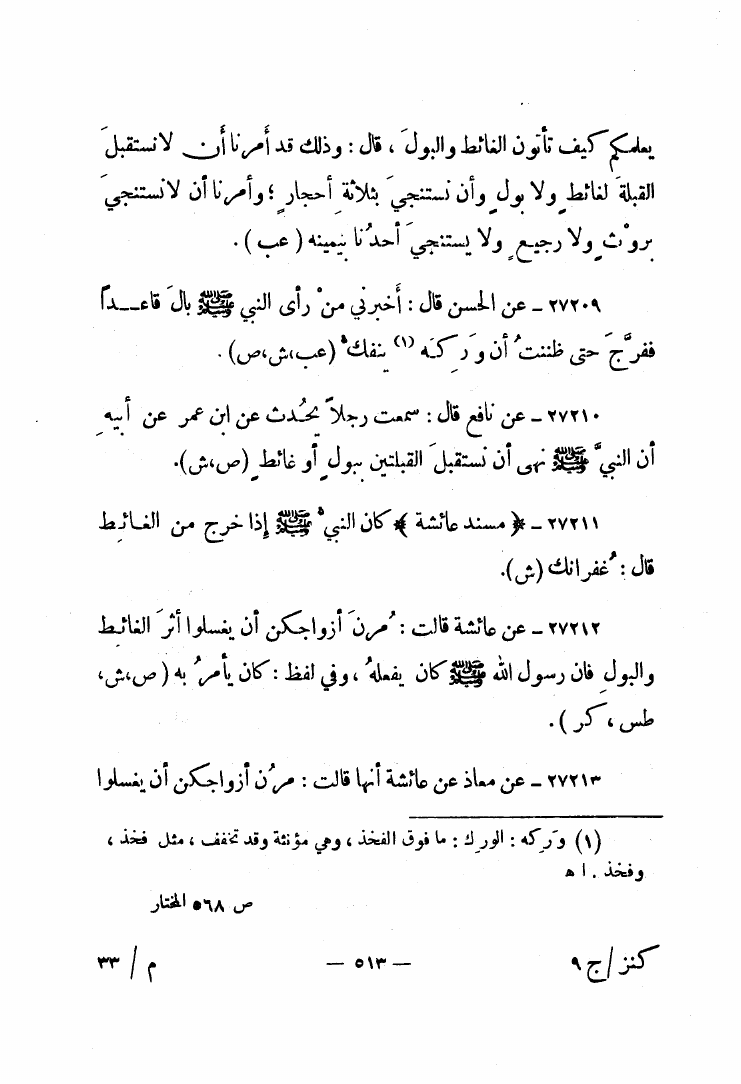 يعلمكم كيف تأتون الغائط والبولَ ، قال : وذلك قد أَمرنا أَن لا نستقبلَ
القبلةَ لغائطٍ ولا بولٍ وأن نستنجيَ بثلاثةِ أحجارٍ ؛ وأمرنا أن لا نستنجيَ
بروْثٍ ولا رجيعٍ ولا يستنجيَ أحدُنا بيمينه ( عب ) .
٢٧٢٠٩ ــ عن الحسن قال : أَخبرني منْ رأى النبي ﷺ بالَ قاعــداً
ففرَّجَ حتى ظننتُ أن وَرِكَه (١) ينفك (عب،ش،ص) .
٢٧٢١٠ ــ عن نافع قال : سمعت رجلاً يحُدث عن ابن عمر عن أبيهِ
أن النبيَّ ﷺ نهى أن نستقبلَ القبلتين ببولٍ أو غائطٍ (ص،ش).
٢٧٢١١ ــ ﴿ مسند عائشة ﴾ كان النبيُّ ﷺ إذا خرج من الغـائـط
قال : غُفرانك (ش).
٢٧٢١٢ ــ عن عائشة قالت : مُرنَ أزواجكن أن يغسلوا أثرَ الغائـط
والبولِ فان رسول الله ﷺ كان يفعلهُ ، وفي لفظ : كان يأمرُ به ( ص،ش،
طس ، كر ) .
٢٧٢١٣ ــ عن معاذ عن عائشة أنها قالت : مرُن أزواجكن أن يغسلوا
(١) وَرِكه : الورِك : ما فوق الفخذ ، وهي مؤنثة وقد تخفف ، مثل فخذ ،
وفخذ . ا ه
ص ٥٦٨ المختار
كنز / ج ٩ — ٥١٣ — م / ٣٣